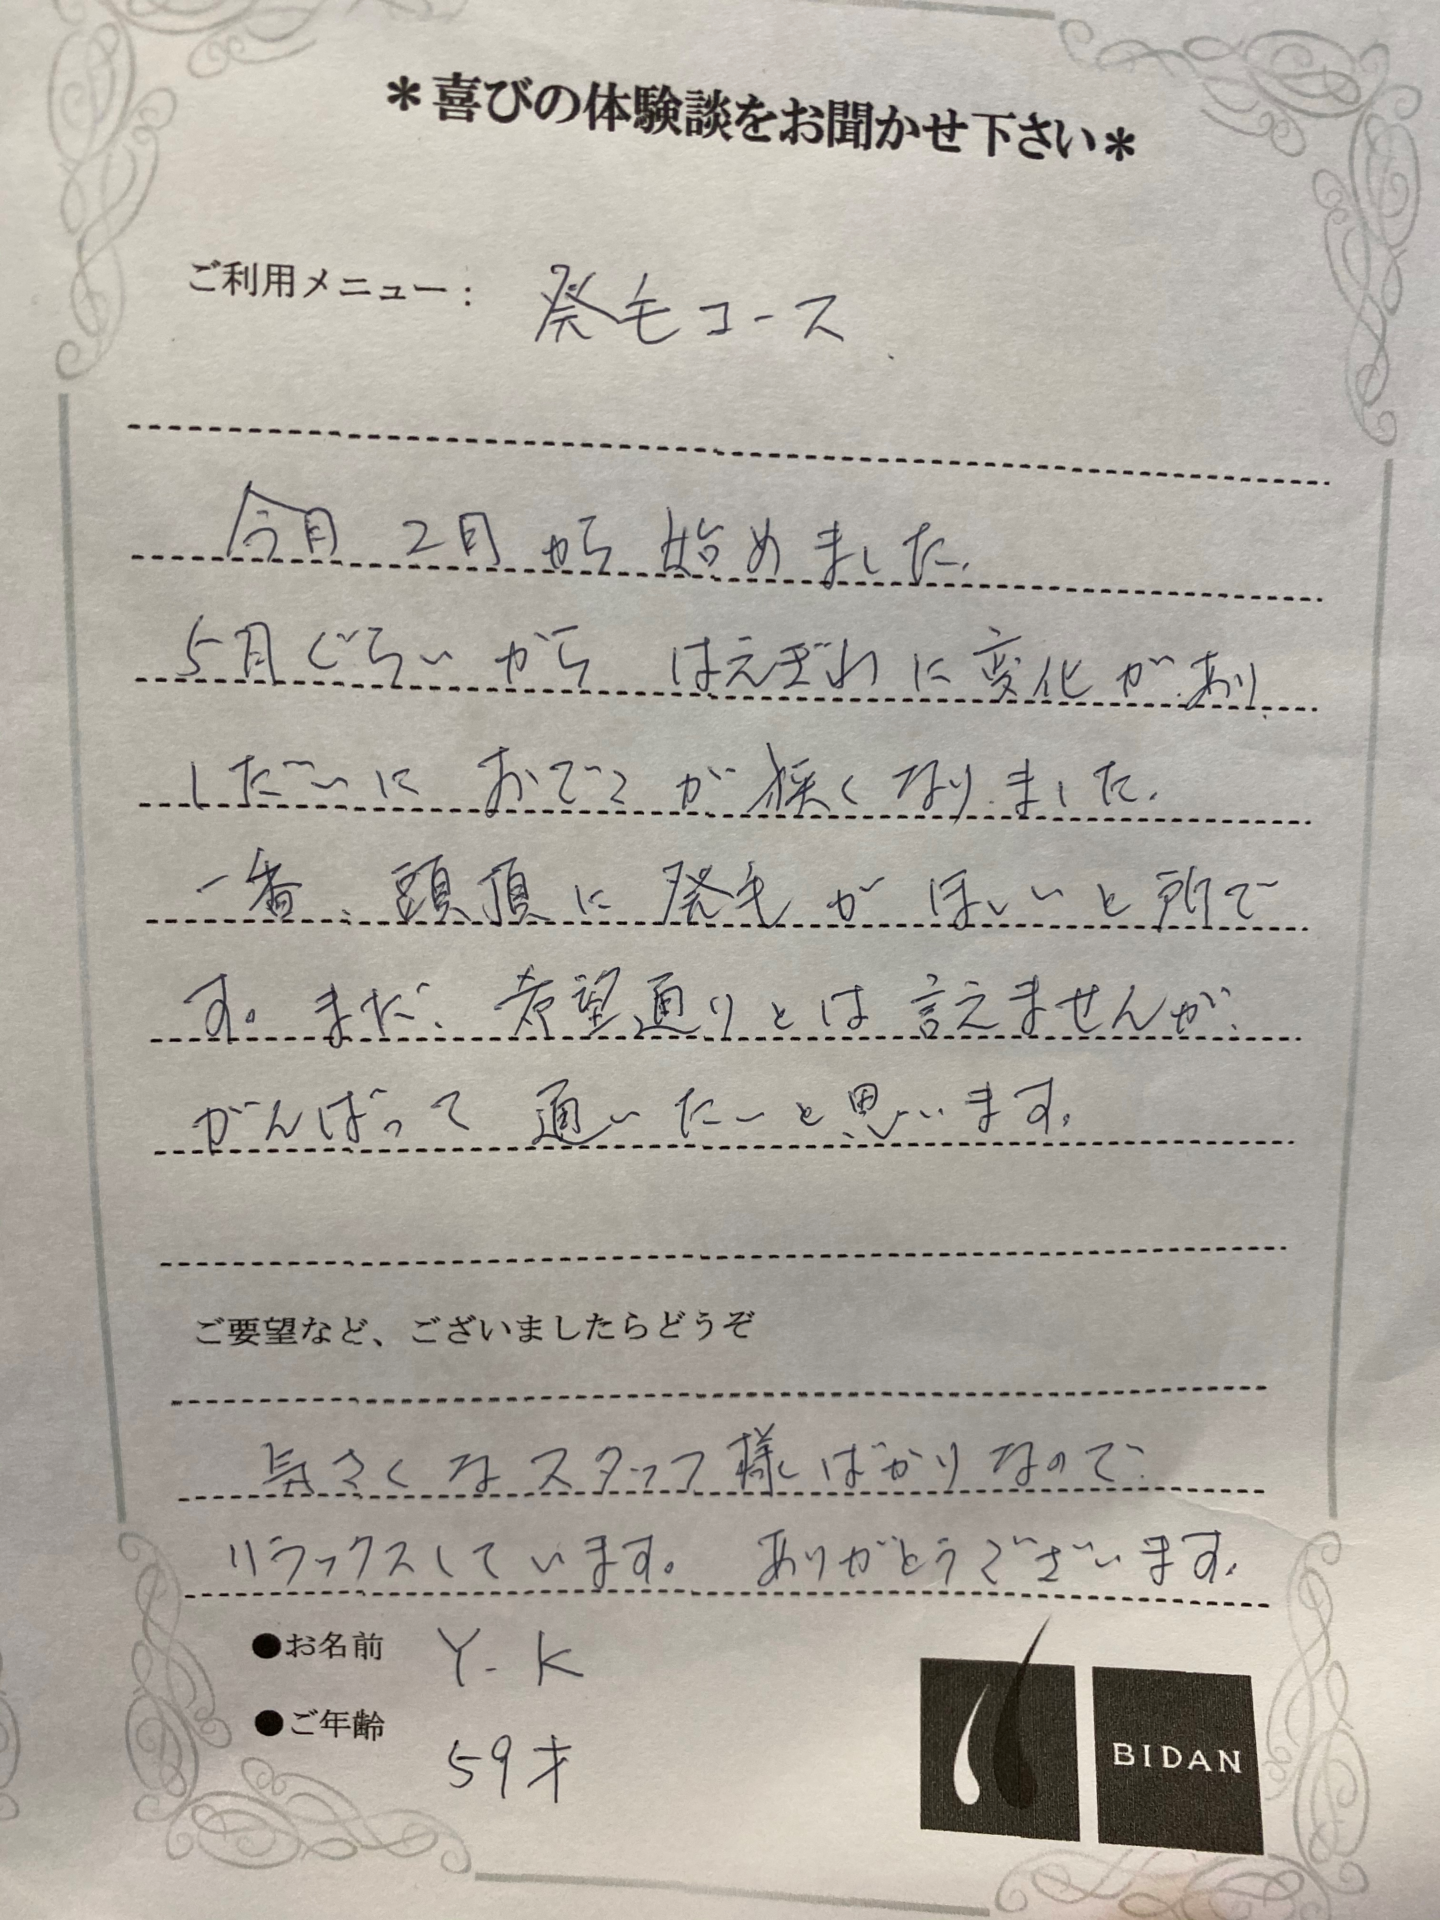 ＊喜びの体験談をお聞かせ下さい＊
ご利用メニュー： 発毛コース
今月 2月から始めました.
5月ぐらいから はえぎわに変化があり、
しだいに おでこが狭くなりました.
一番、頭頂に発毛がほしいと所で
す。まだ、希望通りとは言えませんが、
がんばって通いたいと思います。
ご要望など、ございましたらどうぞ
気さくなスタッフ様ばかりなので、
リラックスしています。ありがとうございます。
●お名前 Y.K
●ご年齢 59才
BIDAN